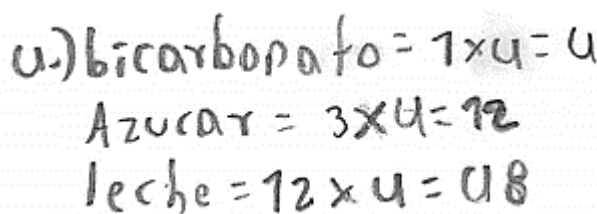 4.) bicarbonato = 1x4 = 4
Azucar = 3x4 = 12
leche = 12 x 4 = 48